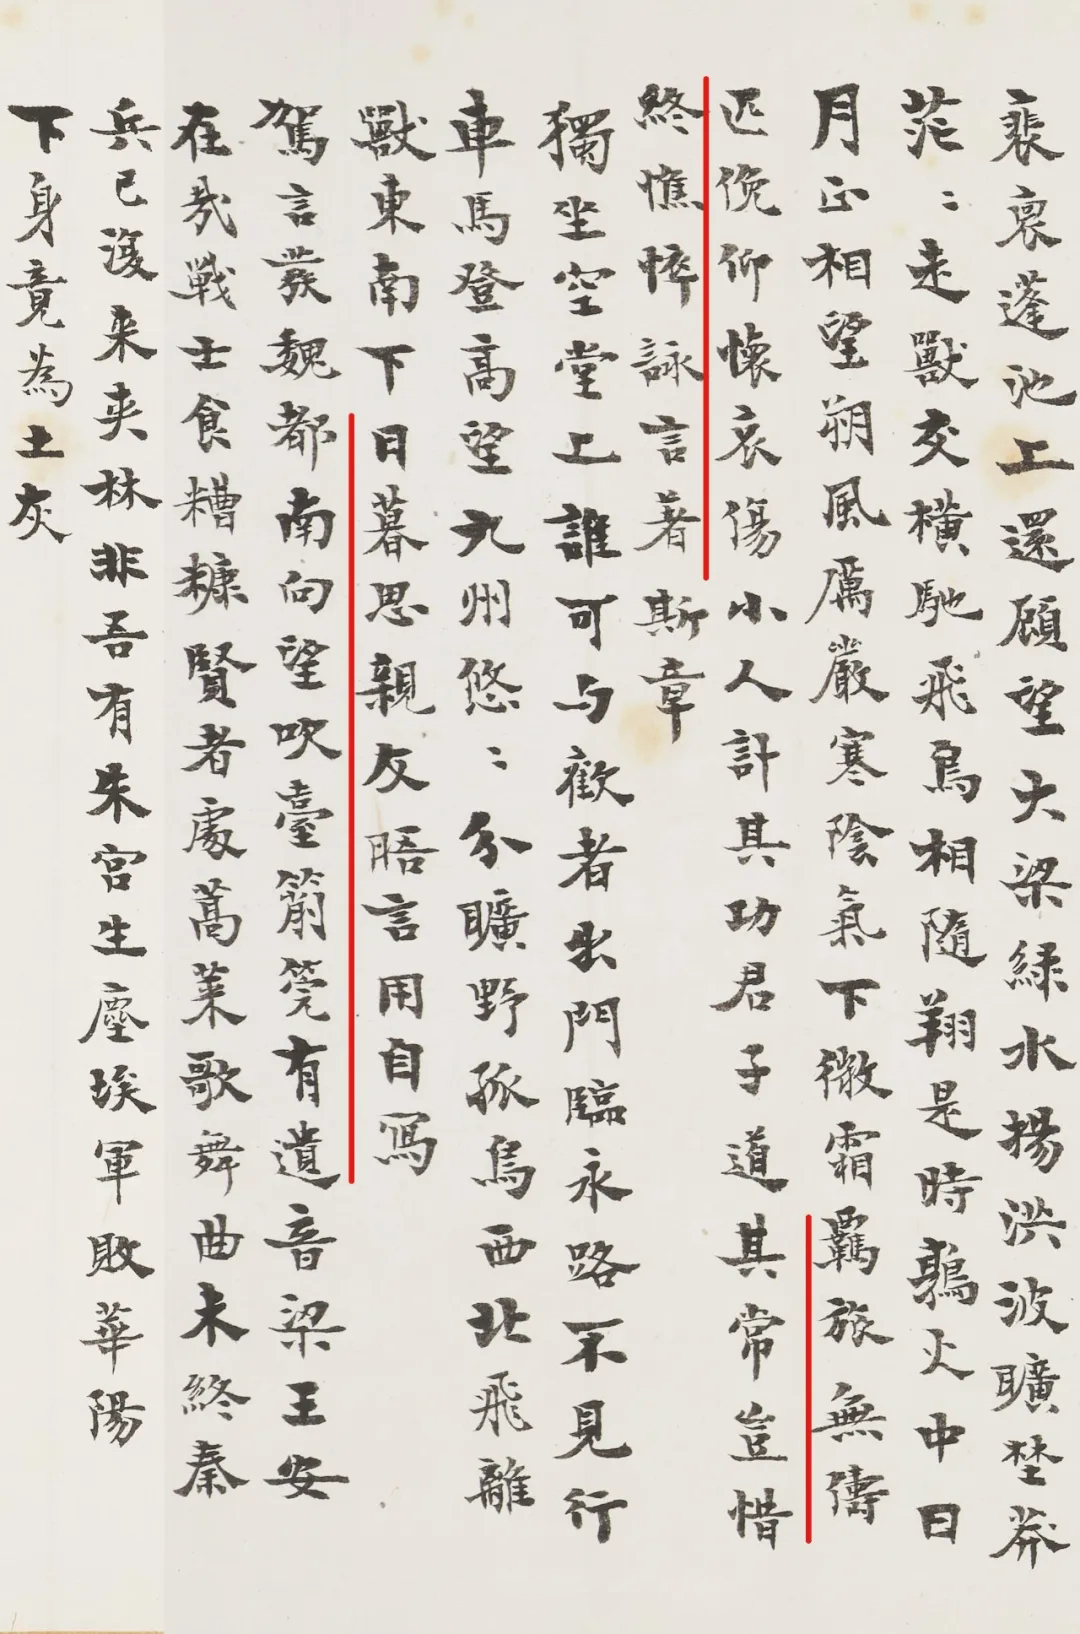 裴裵蓬池上還顧望大梁緑水揚洪波曠埜莽
茫〻走獸交橫馳飛鳥相隨翔是時鶉火中日
月正相望朔風厲嚴寒陰氣下微霜羈旅無儔
匹俛仰懷哀傷小人計其功君子道其常豈惜
終憔悴詠言著斯章
獨坐空堂上誰可与歡者出門臨永路不見行
車馬登高望九州悠〻分曠野孤鳥西北飛離
獸東南下日暮思親友晤言用自寫
駕言發魏都南向望吹臺簫筦有遺音梁王安
在哉戰士食糟糠賢者處蒿萊歌舞曲未終秦
兵已復来夾林非吾有朱宮生塵埃軍敗華陽
下身竟為土灰